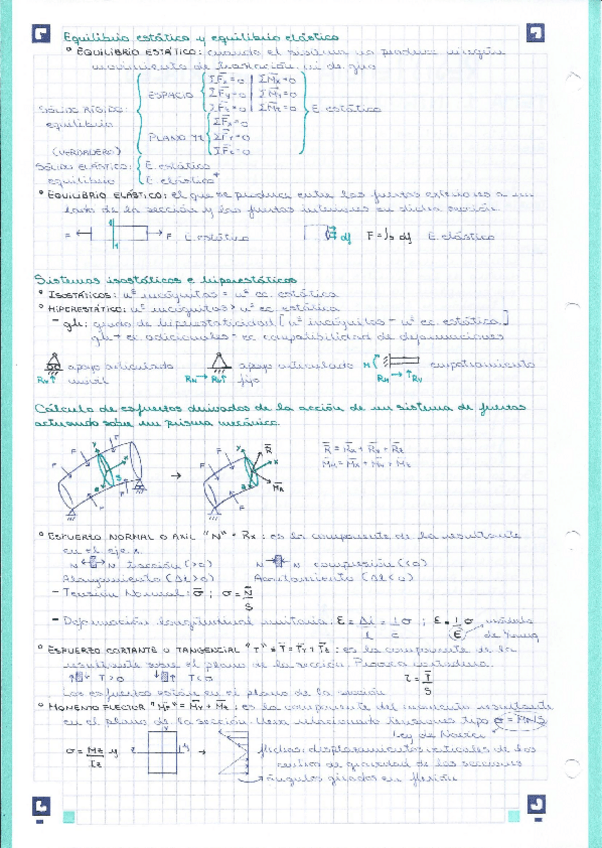 Equilibrio estático y equilibrio elástico
° EQUILIBRIO ESTÁTICO: cuando el sistema no produce ningún
movimiento de traslación ni de giro
ESPACIO { ΣFx=0 ΣMx=0
ΣFy=0 ΣMy=0
ΣFz=0 ΣMz=0 } E. estático
SÓLIDO RÍGIDO:
equilibrio
(VERDADERO)
PLANO YZ { ΣFx=0
ΣFy=0
ΣFz=0
SÓLIDO ELÁSTICO: { E. estático
equilibrio E. elástico
° EQUILIBRIO ELÁSTICO: el que se produce entre las fuerzas exteriores a un
lado de la sección y las fuerzas interiores en dicha sección
F E. estático df F=∫s df E. elástico
Sistemas isostáticos e hiperestáticos
° ISOSTÁTICOS: nº incógnitas = nº ec. estática
° HIPERESTÁTICO: nº incógnitas > nº ec. estática
- gh: grado de hiperestaticidad [nº incógnitas - nº ec. estática]
gh = ec. adicionales = ec compatibilidad de deformaciones
apoyo articulado apoyo articulado M empotramiento
Rv móvil RH → Rv fijo RH → Rv
Cálculo de esfuerzos derivados de la acción de un sistema de fuerzas
actuando sobre un prisma mecánico
° ESFUERZO NORMAL O AXIL "N" = Rx: es la componente de la resultante
en el eje x
N N tracción (>0) N N compresión (<0)
Alargamiento (Δl>0) Acortamiento (Δl<0)
- Tensión Normal: σ; σ = N/S
- Deformación longitudinal unitaria: ε = Δl/l = 1/E σ; ε = 1/E σ módulo
de Young
° ESFUERZO CORTANTE O TANGENCIAL "T" = Ty + Tz: es la componente de la
resultante sobre el plano de la sección. Provoca cortadura.
T>0 T<0 τ = T/S
Los esfuerzos están en el plano de la sección
° MOMENTO FLECTOR "MF" = My + Mz: es la componente del momento resultante
en el plano de la sección. Viene relacionado tensiones tipo
Ley de Navier
σ = Mz/Iz y
flechas: desplazamientos verticales de los
centros de gravedad de las secciones
ángulos girados en flexión